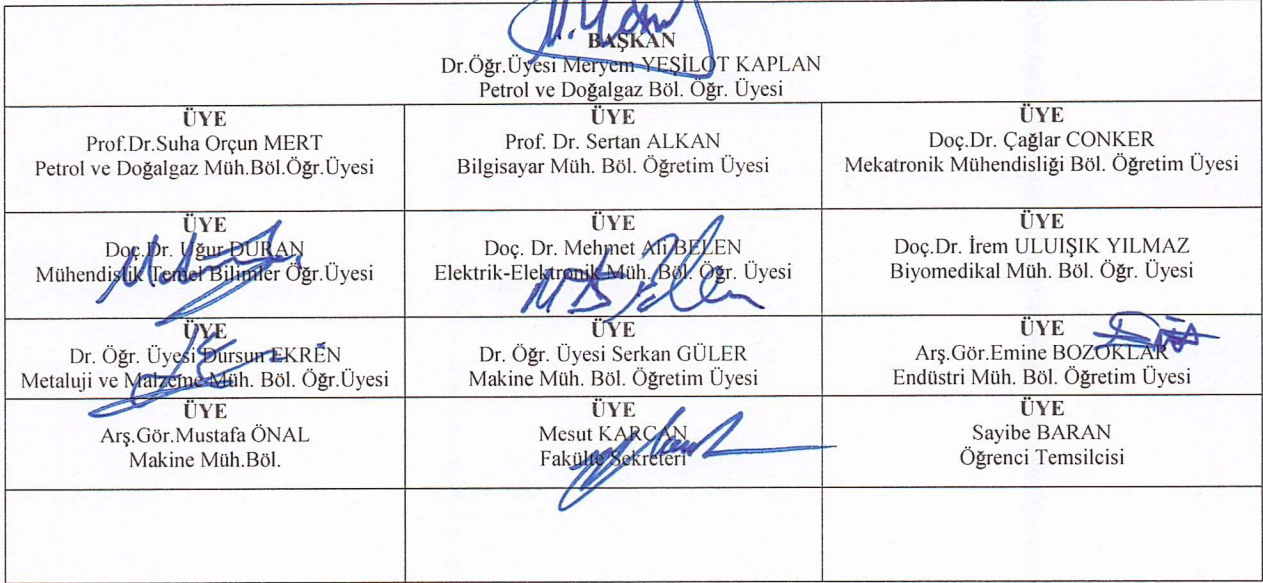 BAŞKAN
Dr.Öğr.Üyesi Meryem YEŞİLOT KAPLAN
Petrol ve Doğalgaz Böl. Öğr. Üyesi
ÜYE
Prof.Dr.Suha Orçun MERT
Petrol ve Doğalgaz Müh.Böl.Öğr.Üyesi
ÜYE
Prof. Dr. Sertan ALKAN
Bilgisayar Müh. Böl. Öğretim Üyesi
ÜYE
Doç.Dr. Çağlar CONKER
Mekatronik Mühendisliği Böl. Öğretim Üyesi
ÜYE
Doç.Dr. Uğur DURAN
Mühendislik Temel Bilimler Öğr.Üyesi
ÜYE
Doç. Dr. Mehmet Ali BELEN
Elektrik-Elektronik Müh. Böl. Öğr. Üyesi
ÜYE
Doç.Dr. İrem ULUIŞIK YILMAZ
Biyomedikal Müh. Böl. Öğr. Üyesi
ÜYE
Dr. Öğr. Üyesi Dursun EKREN
Metaluji ve Malzeme Müh. Böl. Öğr.Üyesi
ÜYE
Dr. Öğr. Üyesi Serkan GÜLER
Makine Müh. Böl. Öğretim Üyesi
ÜYE
Arş.Gör.Emine BOZOKLAR
Endüstri Müh. Böl. Öğretim Üyesi
ÜYE
Arş.Gör.Mustafa ÖNAL
Makine Müh.Böl.
ÜYE
Mesut KARCAN
Fakülte Sekreteri
ÜYE
Sayibe BARAN
Öğrenci Temsilcisi